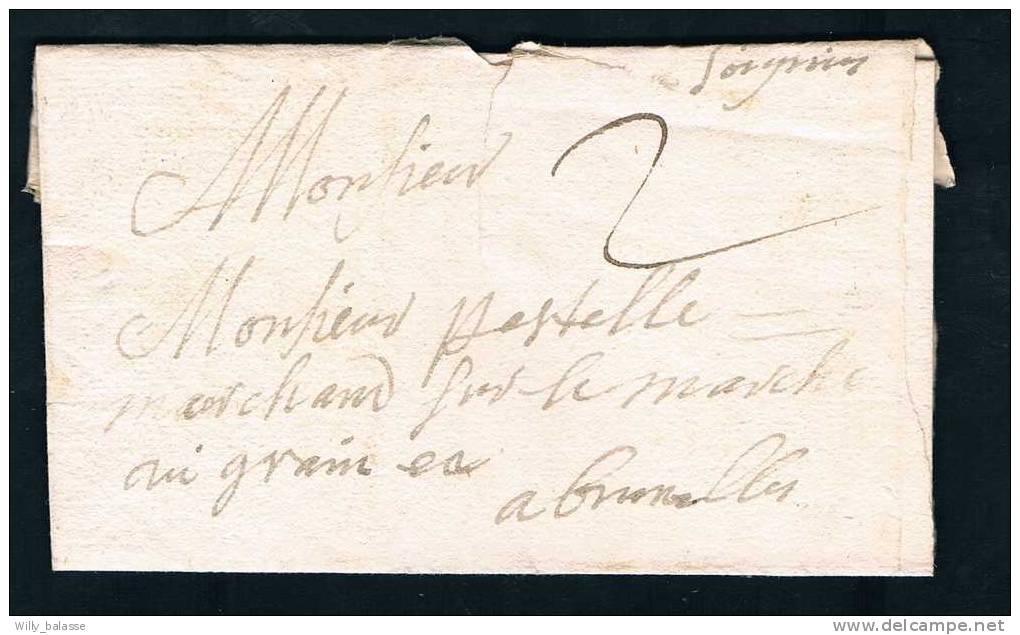 Soignies
Monsieur
2
Monsieur pestelle
marchand sur le marche
au grain
a bruxelles
Willy_balasse
www.delcampe.net